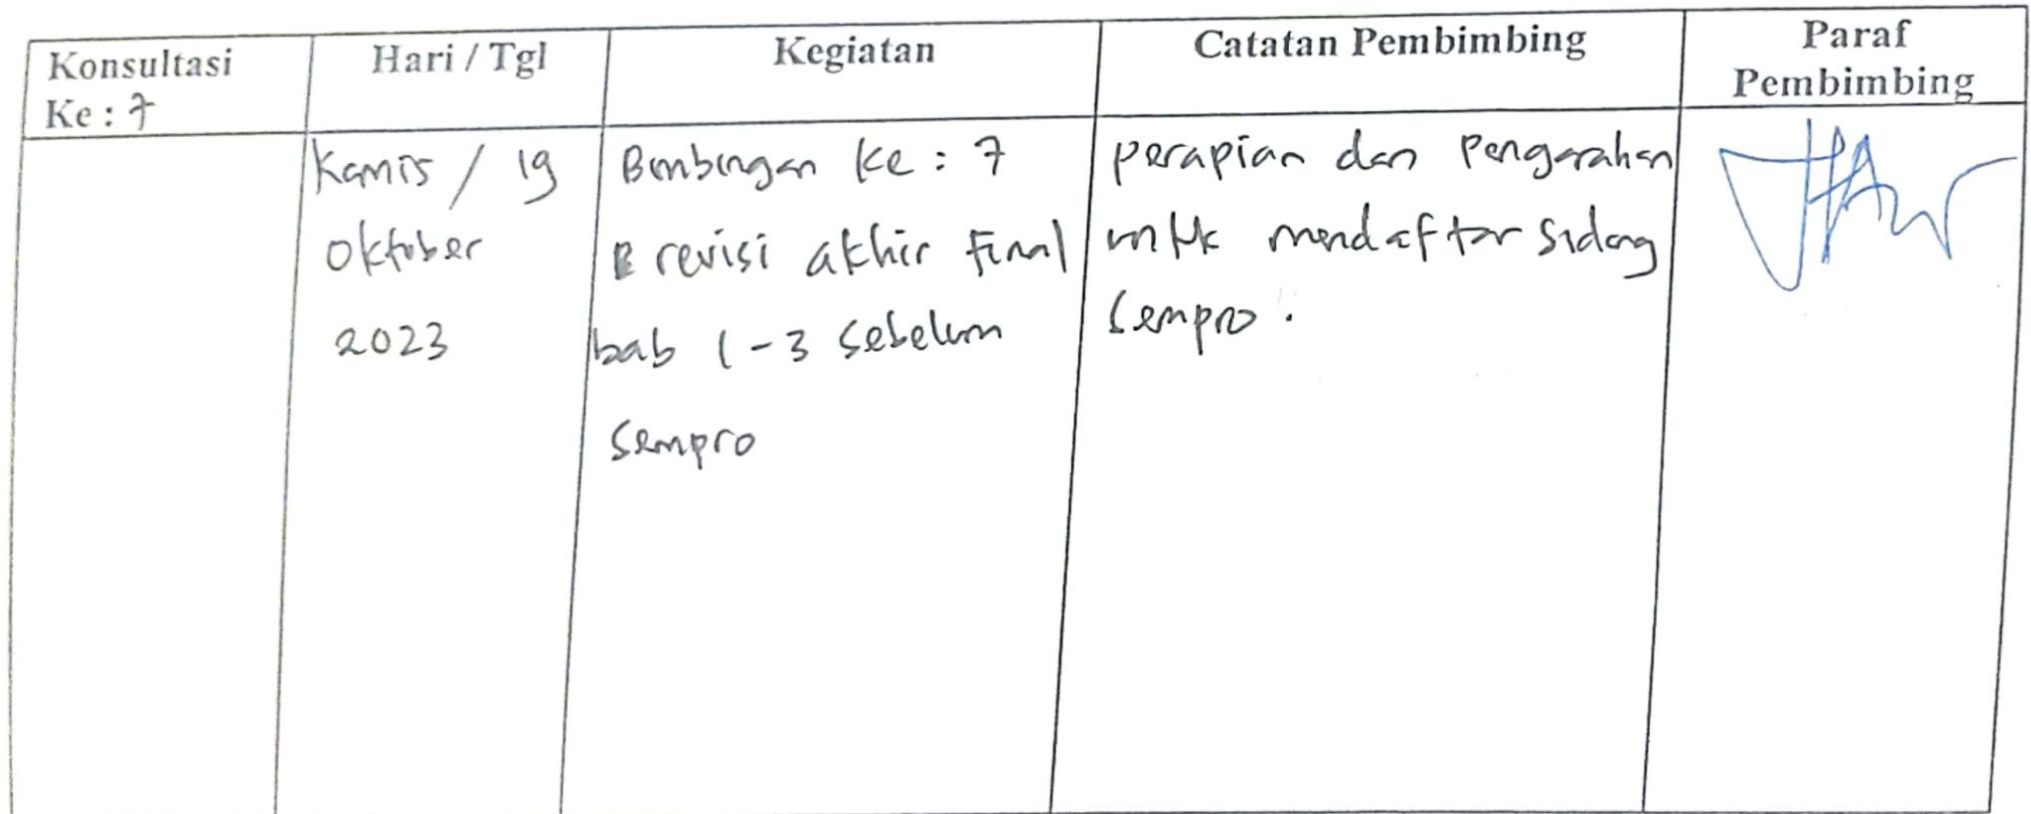 Konsultasi
Ke : 7
Hari / Tgl
Kegiatan
Catatan Pembimbing
Paraf
Pembimbing
Kamis / 19
Oktober
2023
Bimbingan Ke : 7
revisi akhir final
bab 1-3 sebelum
Sempro
perapian dan Pengarahan
untuk mendaftar Sidang
Sempro .